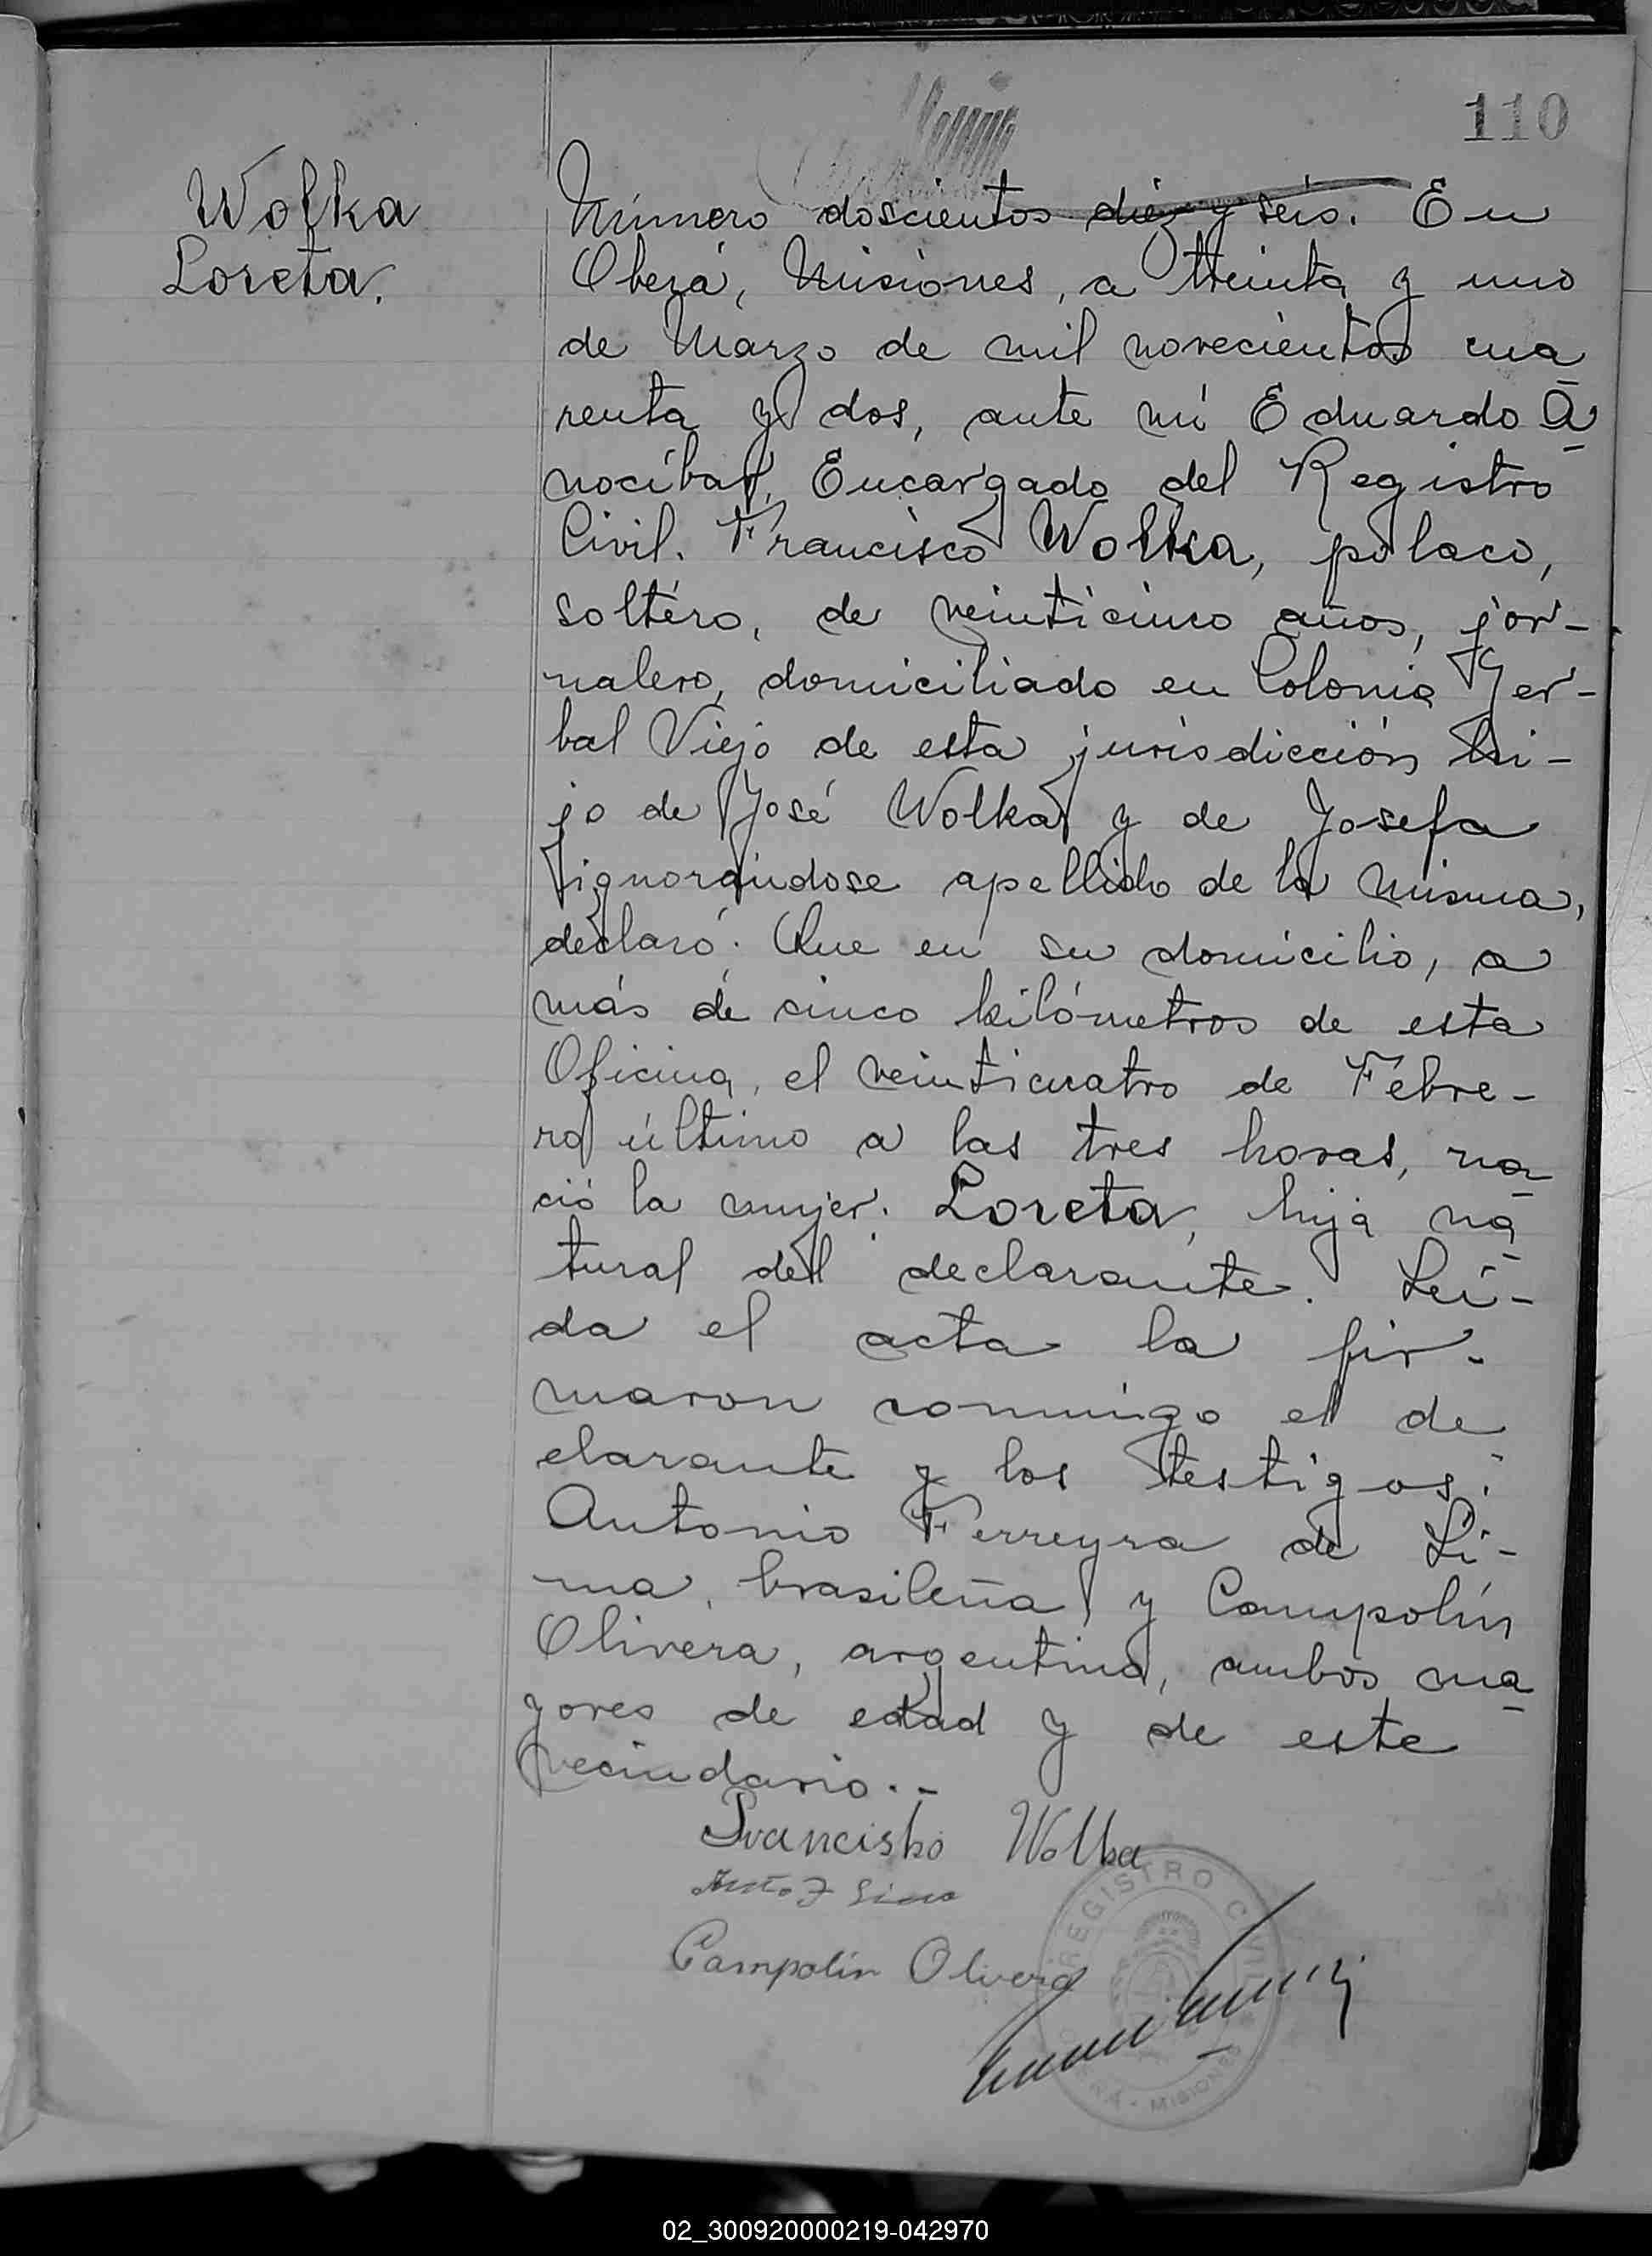 110
Wolka
Loreta.
Número doscientos diez y seis. En
Oberá, Misiones, a treinta y uno
de Marzo de mil novecientos cua
renta y dos, ante mí Eduardo A
nocíbar, Encargado del Registro
Civil. Francisco Wolka, polaco,
soltéro, de veinticinco años, jor-
nalero, domiciliado en Colonia Yer-
bal Viejo de esta jurisdicción hi-
jo de José Wolka y de Josefa
ignorándose apellido de la misma,
declaró: Que en su domicilio, a
más de cinco kilómetros de esta
Oficina, el veinticuatro de Febre-
ro último a las tres horas, na
ció la mujer: Loreta, hija na
tural del declarante. Leí-
da el acta la fir-
maron conmigo el de
clarante y los testigos:
Antonio Ferreyra de Li-
ma, brasileña y Campolín
Olivera, argentina, ambos ma
yores de edad y de este
vecindario.-
Francisko Wolka
Campolín Olivera
REGISTRO CIVIL
MISIONES
02_300920000219-042970